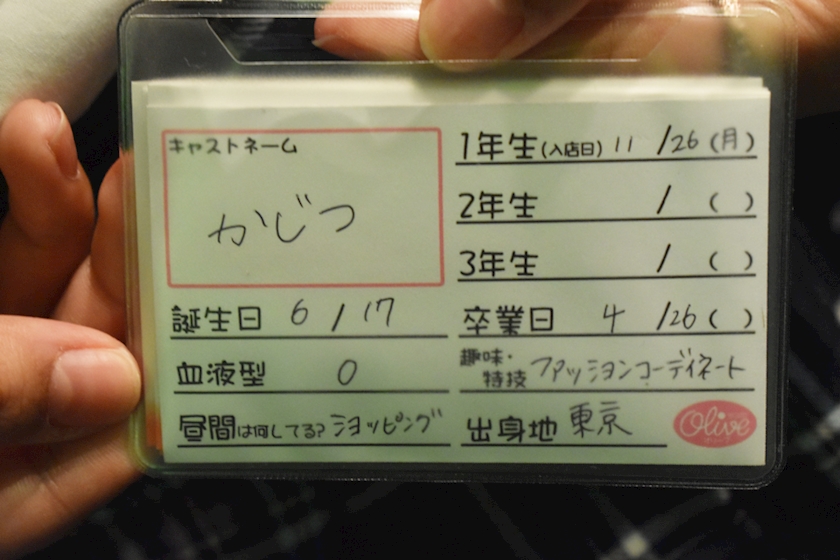 キャストネーム
かじつ
誕生日 6/17
血液型 O
昼間は何してる? ショッピング
1年生(入店日) 11/26(月)
2年生 / ( )
3年生 / ( )
卒業日 4/26( )
趣味・特技 ファッションコーディネート
出身地 東京
Olive